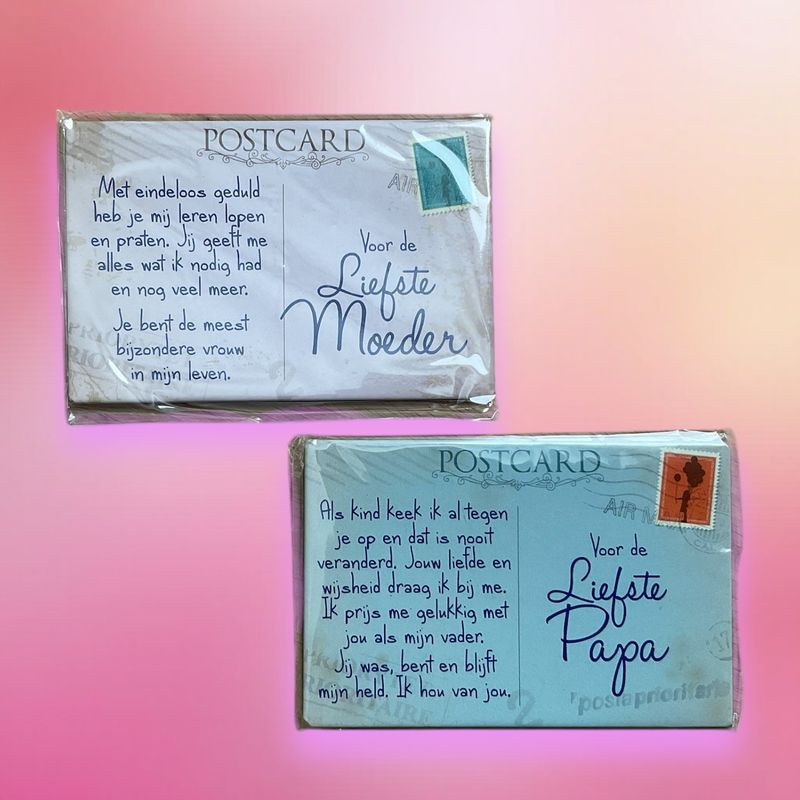 POSTCARD
AIR
Met eindeloos geduld
heb je mij leren lopen
en praten. Jij geeft me
alles wat ik nodig had
en nog veel meer.
Je bent de meest
bijzondere vrouw
in mijn leven.
Voor de
Liefste
Moeder
POSTCARD
AIR M
Als kind keek ik al tegen
je op en dat is nooit
veranderd. Jouw liefde en
wijsheid draag ik bij me.
Ik prijs me gelukkig met
jou als mijn vader.
Jij was, bent en blijft
mijn held. Ik hou van jou.
Voor de
Liefste
Papa
"posta prioritaria